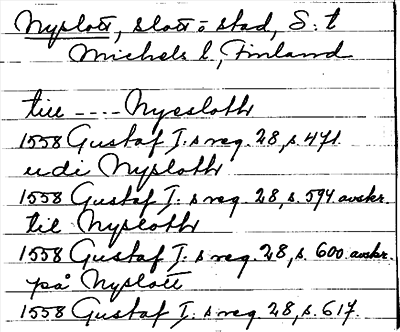 Nyslott, slott o stad, S:t
Michels l, Finland
till ---- Nyesloth
1558 Gustaf I:s reg. 28, s. 471.
udi Nysloth
1558 Gustaf I:s reg. 28, s. 594 avskr.
til Nysloth
1558 Gustaf I:s reg. 28, s. 600 avskr.
på Nyslott
1558 Gustaf I:s reg. 28, s. 617.